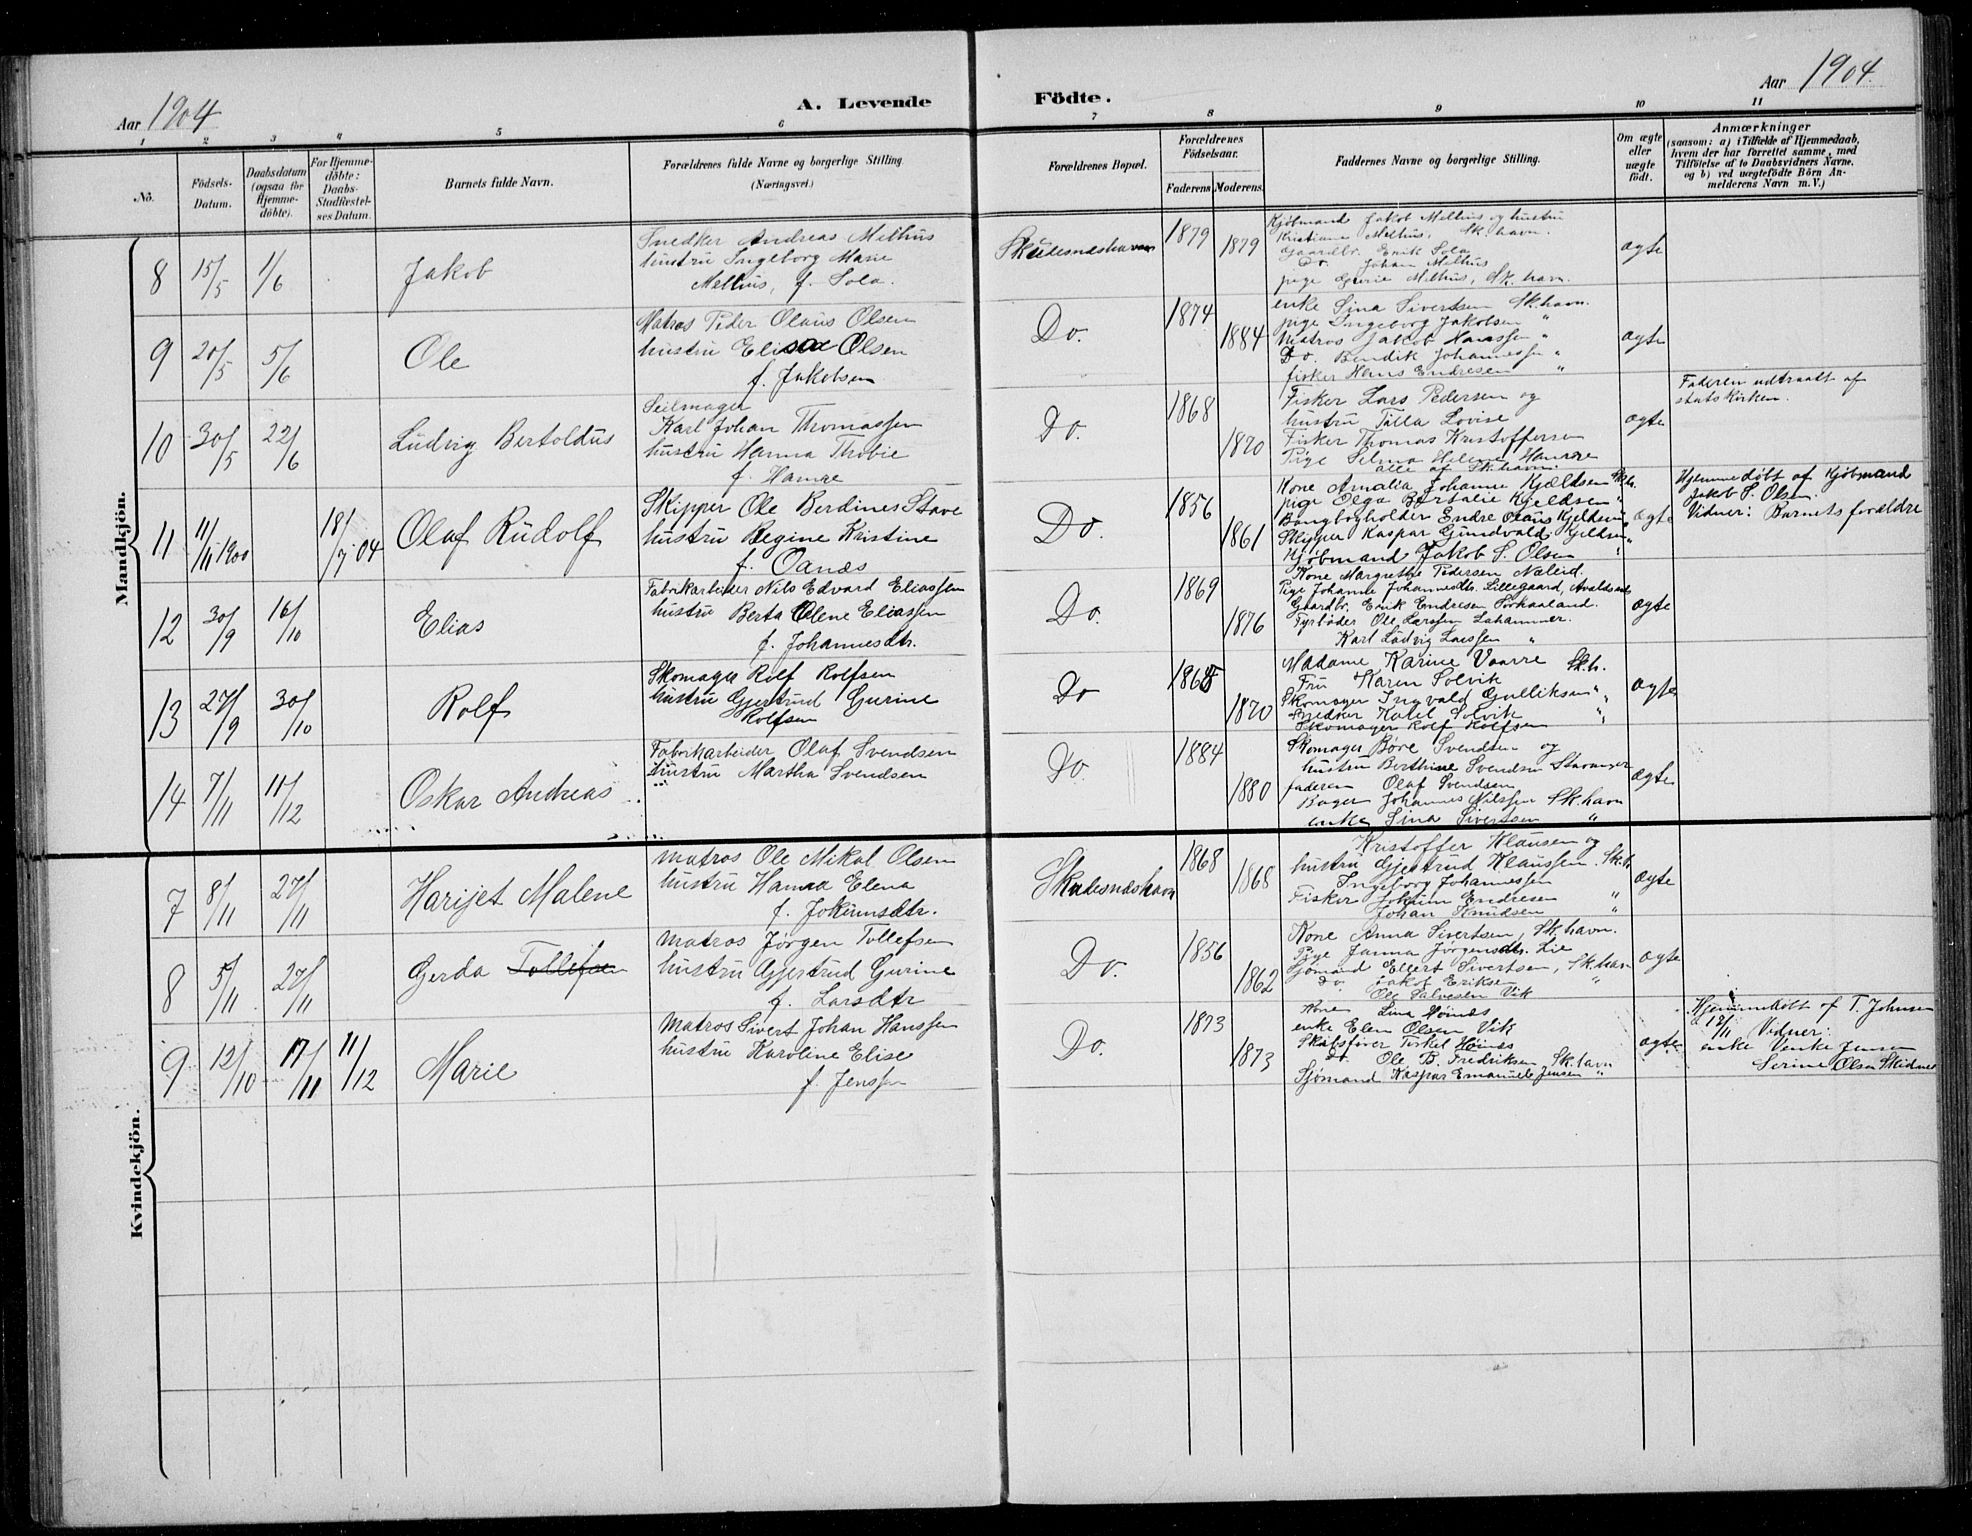 Aar 1904
A. Levende
1 2 3 4 5 6
No.
Födsels-Datum.
Daabsdatum (ogsaa for Hjemme-döbte).
For Hjemme-döbte: Daabs-Stadfæstel-ses Datum.
Barnets fulde Navn.
Forældrenes fulde Navne og borgerlige Stilling. (Næringsvei.)
Födte.
Aar 1904.
7 8 9 10 11
Forældrenes Bopæl.
Forældrenes Födselsaar.
Faderens. Moderens.
Faddernes Navne og borgerlige Stilling.
Om ægte eller uægte födt.
Anmærkninger
(saasom: a) i Tilfælde af Hjemmedaab, hvem der har forrettet samme, med Tilföielse af to Daabsvidners Navne, og b) ved uægtefödte Börn An-melderens Navn m. V.)
Mandkjön.
8 15/5 1/6 Jakob
Snedker Andreas Melhus
hustru Ingeborg Marie
Melhus, f. Sola.
Skudesneshavn 1879 1879
Kjøbmand Jakob Melhus og hustru
Kristiane Melhus, Sk.havn.
Gaardbr. Enik Sola
Do. Johan Melhus
pige Gurie Melhus, Sk.havn.
ægte
9 20/5 5/6 Ole
Matros Peder Olaus Olsen
hustru Elisa Olsen
f. Jakobsen
Do. 1874 1884
enke Sina Sivertsen Sk.havn.
pige Ingeborg Jakobsen "
Matros Jakob Hanssen "
Do. Bendik Johannessen "
fisker Hans Endresen "
ægte
10 30/5 22/6 Ludvig Bertoldus
Seilmager
Karl Johan Thomassen
hustru Hanna Thobie
f. Hamre
Do. 1868 1870
Fisker Lars Pedersen og
hustru Tilla Lovise
Fisker Thomas Kristoffersen
Pige Selma Helene Hamre
alle af Sk.havn.
ægte
Faderen udtraadt af
statskirken.
11 11/11 1900 18/7 04 Olaf Rudolf
Skipper Ole Berdines Stave
hustru Regine Kristine
f. Oanæs
Do. 1856 1861
Kone Amalia Johanne Kjældsen Sk.h.
pige Olga Bertalie Kjeldsen "
Bangbogholder Endre Olaus Kjeldsen "
Skipper Kaspar Gundvald Kjeldsen "
Kjøbmand Jakob S. Olsen "
ægte
Hjemmedøbt af Kjøbmand
Jakob S. Olsen.
Vidner: Barnets forældre
12 30/9 16/10 Elias
Fabrikarbeider Nils Edvard Eliassen
hustru Berta Olene Eliassen
f. Johannesdtr.
Do. 1869 1876
Kone Margrethe Pedersen Næleid.
Pige Johanne Johannesdtr. Lillegaard, Avaldsnes
Gaardbr. Erik Endresen Sørhaaland.
Fyrbøder Ole Larssen Lahammer.
Karl Ludvig Larssen "
ægte
13 27/9 30/10 Rolf
Skomager Rolf Rolfsen
hustru Gjertrud Gurine
Rolfsen
Do 1865 1870
Madame Karine Vaarre Sk.h.
Fru Karen Solvik "
Skomager Ingvald Gulliksen "
Snedker Kolel Solvik "
Skomager Rolf Rolfsen
ægte
14 7/11 11/12 Oskar Andreas
Fabrikarbeider Olaf Svendsen
hustru Martha Svendsen
Do. 1884 1880
Skomager Børe Svendsen og
hustru Berthine Svendsen Stavanger
faderen Olaf Svendsen
Bager Johannes Nilssen Sk.havn
enke Sina Sivertsen "
ægte
Kvindekjön.
7 8/11 27/11 Harijet Malene
Matros Ole Mikal Olsen
hustru Hanna Elena
f. Jokumsdtr.
Skudesneshavn 1868 1868
Kristoffer Klausen og
hustru Gjertrud Klaussen Sk.h.
Ingeborg Johannessen
Fisker Jokum Endresen "
Johan Knudsen "
ægte
8 5/11 27/11 Gerda Tollefsen
Matros Jørgen Tollefsen
hustru Gjertrud Gurine
f. Larsdtr
Do. 1856 1862
Kone Anna Sivertsen, Sk.havn.
Pige Janna Jørgensdtr. Lie
Sjømand Ellert Sivertsen, Sk.havn
Do Jakob Eriksen "
Ole Salvesen Vik
ægte
9 12/10 17/11 11/12 Marie
Matros Sivert Johan Hanssen
hustru Karoline Elise
f. Jenssen
Do. 1873 1873
Kone Lina Høinæs
enke Elen Olsen Vik
Skibsfører Torkel Høinæs
Do. Ole B. Fredriksen Sk.havn
Sjømand Kaspar Emanuele Jensen "
ægte
Hjemmedøbt af T. Johnsen
12/11 Vidner:
enke Venke Jensen
Serine Olsen Skidnes